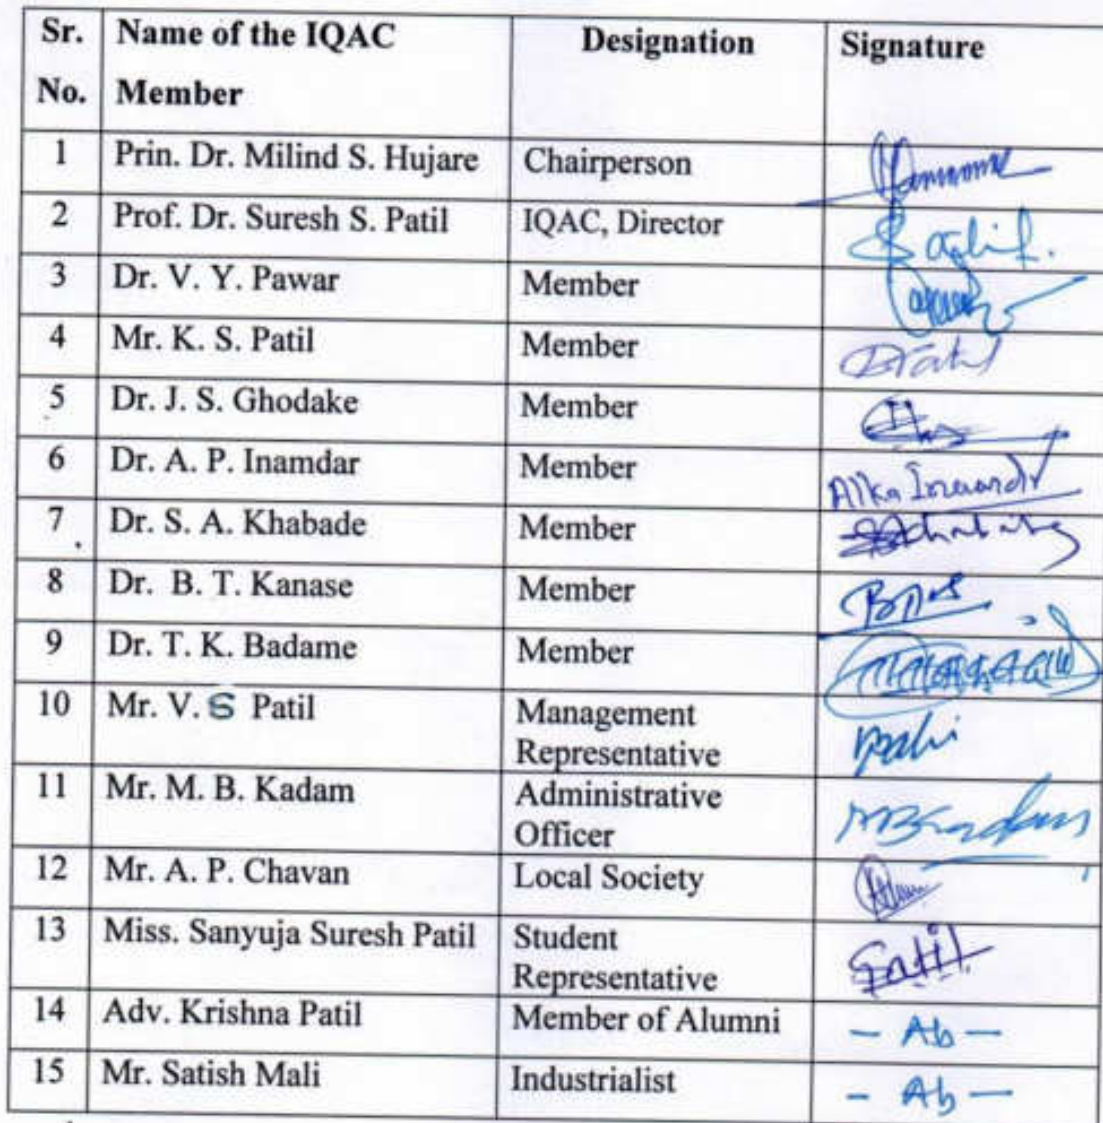 Sr. Name of the IQAC Designation Signature
No. Member
1 Prin. Dr. Milind S. Hujare Chairperson
2 Prof. Dr. Suresh S. Patil IQAC, Director
3 Dr. V. Y. Pawar Member
4 Mr. K. S. Patil Member
5 Dr. J. S. Ghodake Member
6 Dr. A. P. Inamdar Member Alka Inamdar
7 Dr. S. A. Khabade Member
8 Dr. B. T. Kanase Member
9 Dr. T. K. Badame Member
10 Mr. V. S Patil Management
Representative
11 Mr. M. B. Kadam Administrative
Officer MBKadam
12 Mr. A. P. Chavan Local Society
13 Miss. Sanyuja Suresh Patil Student
Representative
14 Adv. Krishna Patil Member of Alumni - Ab -
15 Mr. Satish Mali Industrialist - Ab -